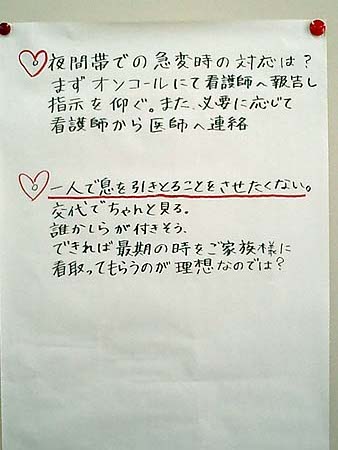 夜間帯での急変時の対応は?
まずオンコールにて看護師へ報告し
指示を仰ぐ。また、必要に応じて
看護師から医師へ連絡
一人で息を引きとることをさせたくない。
交代でちゃんと見る。
誰かしらが付きそう、
できれば最期の時をご家族様に
看取ってもらうのが理想なのでは?